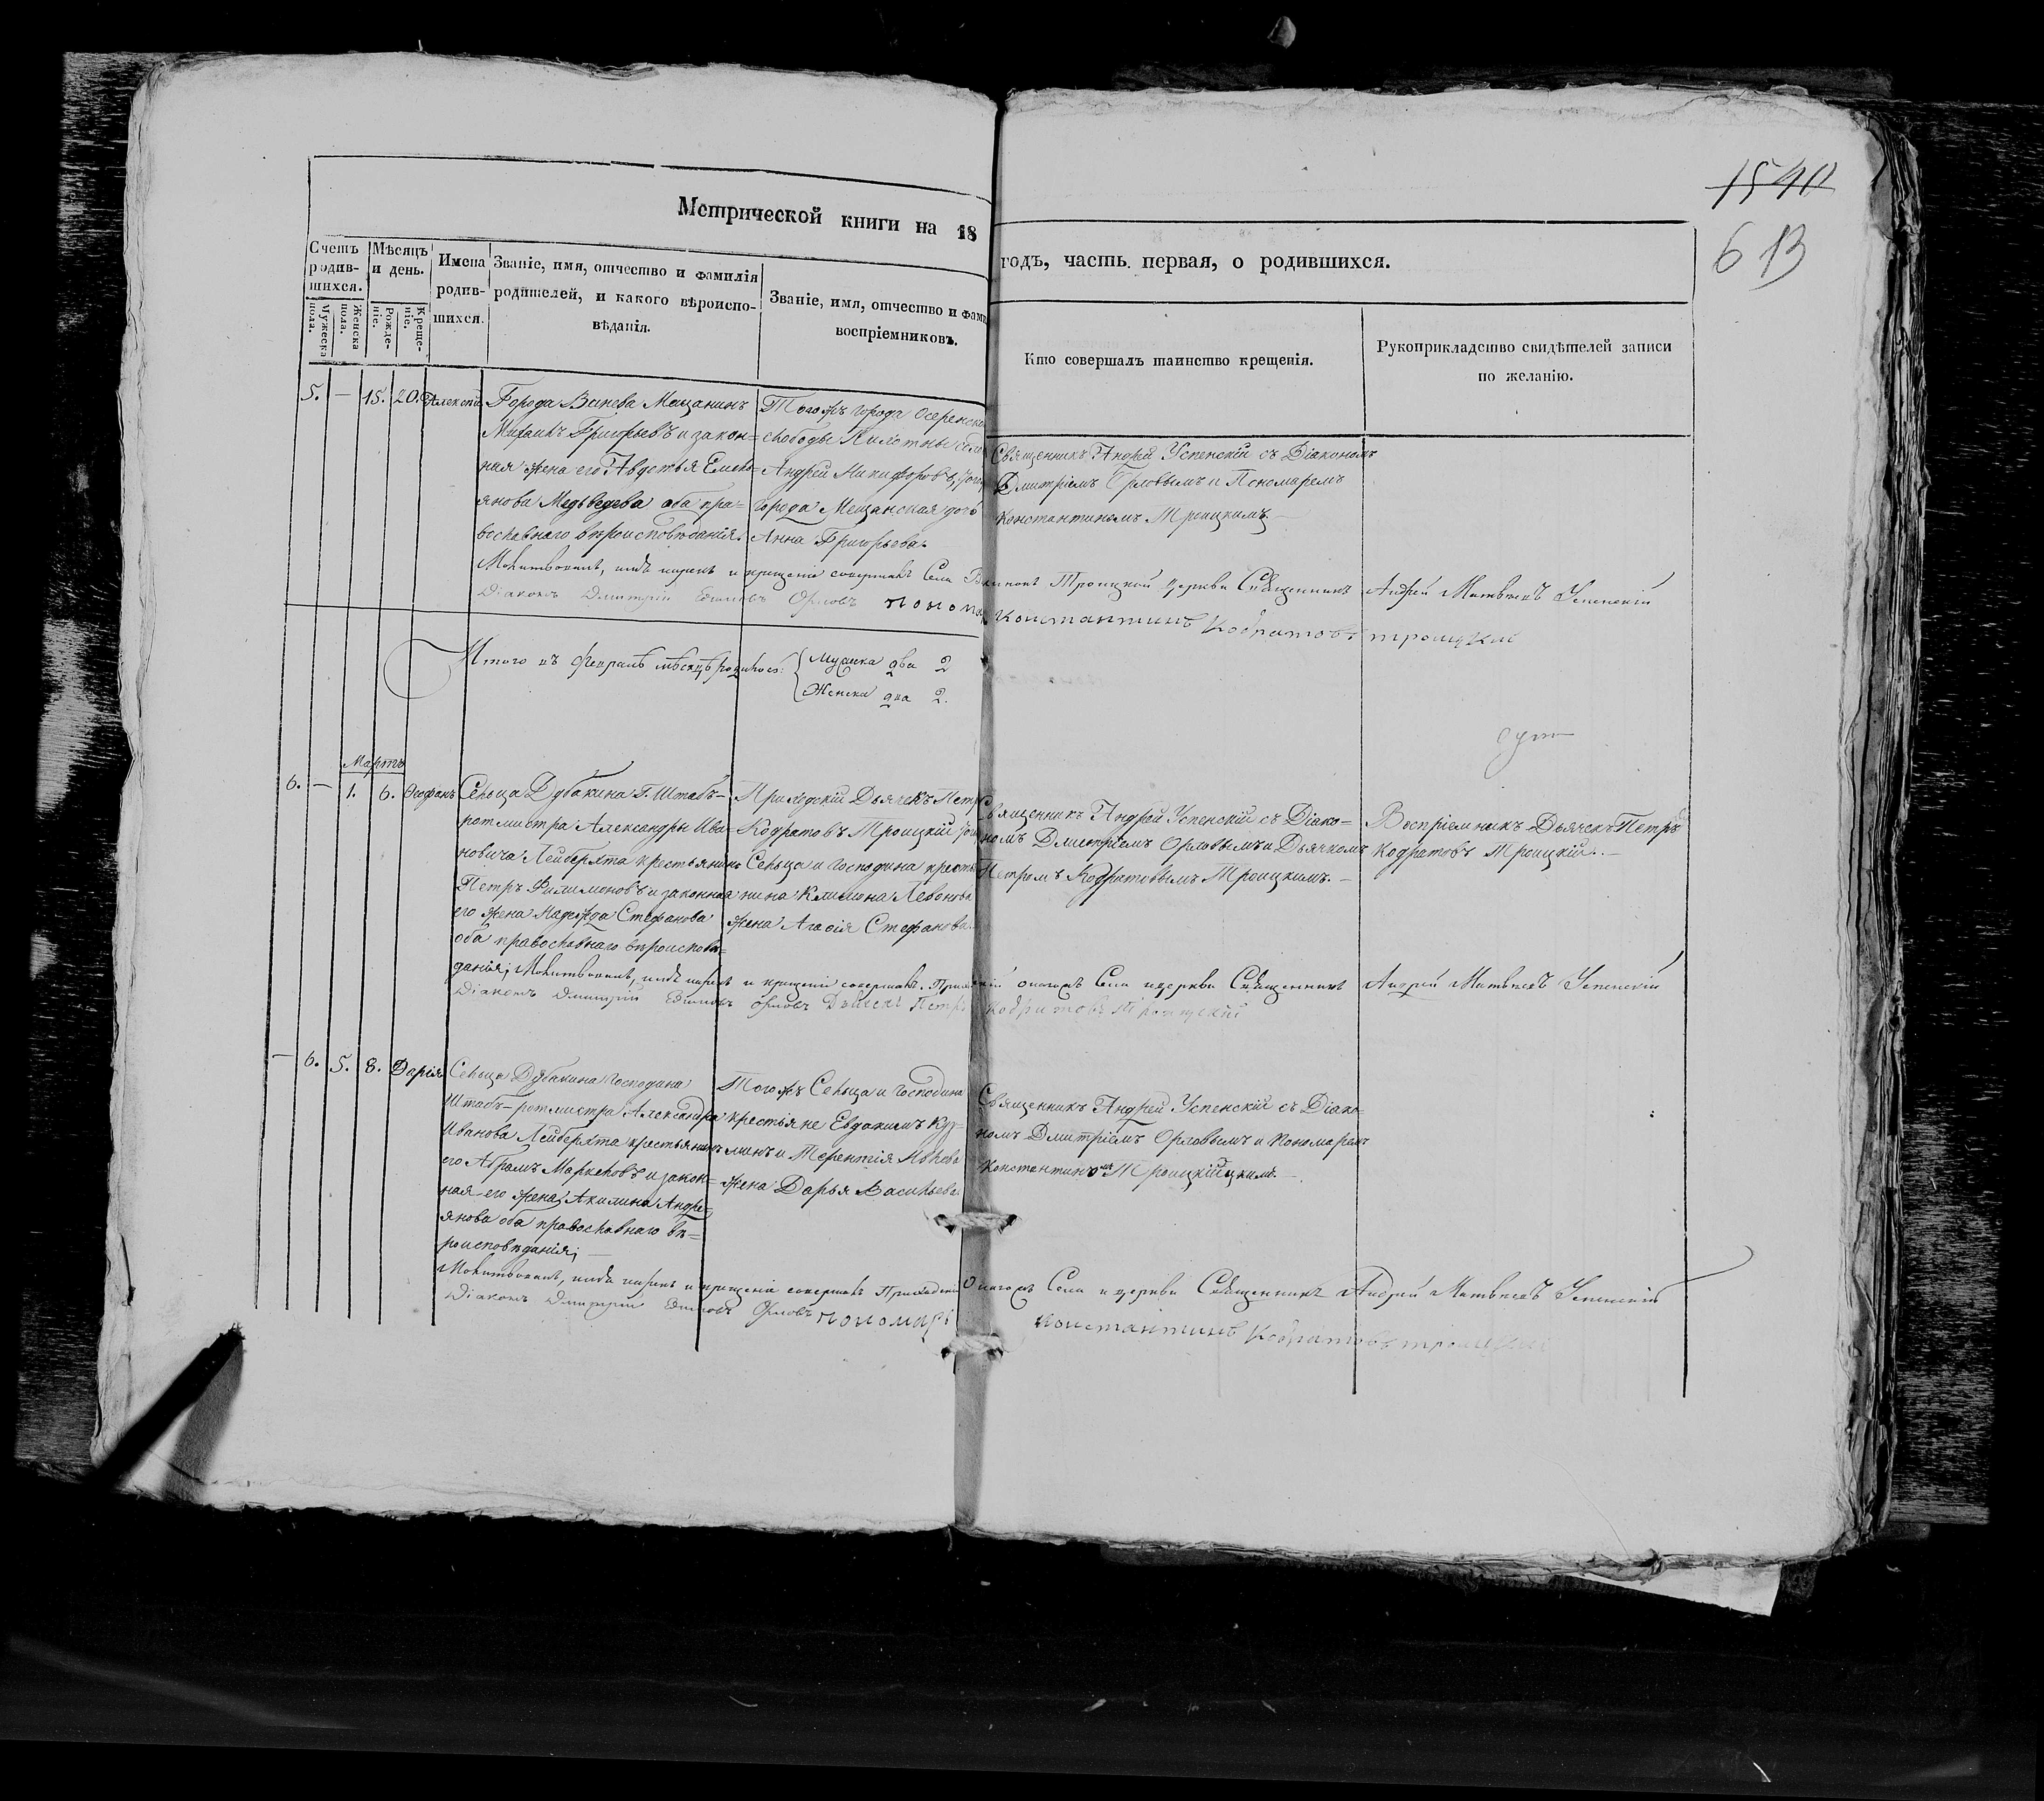 1540
6 13
Метрической книги на 18
годъ, часть первая, о родившихся.
Счетъ родив-шихся.
Мѣсяцъ и день.
Имена родив-шихся.
Званіе, имя, отчество и фамилія родителей, и какого вѣроиспо-вѣданія.
Званіе, имя, отчество и фами
воспріемниковъ.
Кто совершалъ таинство крещенія.
Рукоприкладство свидѣтелей записи
по желанію.
Мужеска пола.
Женска пола.
Рожде-ніе.
Креще-ніе.
5. — 15. 20. Алексѣй
Города Венева Мещанинъ
Михаилъ Григорьевъ и закон=
ная жена его Авдотья Емель=
янова Медьведева оба пра=
вославнаго вѣроисповѣданія.
Тогожъ города Озеренской
слободы
Андрей Никифоровъ,
города Мещанская дочь
Анна Григорьева.
Священникъ Андрей Успенскій съ Діакономъ
Дмитріемъ Орловымъ и Пономаремъ
Константиномъ Троицкимъ.—
Молитвовалъ, имя нарекъ и крещеніе совершалъ Села Троицкой церкви Священникъ Андрей Матвѣевъ Успенскій
Діаконъ Дмитрій Орловъ пономарь Константинъ Кодратовъ троицкій
Итого въ Февралѣ мѣсяцѣ родилось:
Мужска два 2
Женска два 2.
Мартъ
6. — 1. 6. Ѳеофанъ
Сельца Дубакина Г. Штабъ-
ротмистра Александры Ива=
новича Лейбрехта крестьянинъ
Петръ Филимоновъ и законная
его жена Надежда Стефанова
оба православнаго вѣроисповѣ=
данія;
Приходскій Дьячекъ Петръ
Кодратовъ Троицкій
Сельца и Господина кресть
нина Климона Левонова
жена Агафія Стефанова.
Священникъ Андрей Успенскій съ Діако=
номъ Дмитріемъ Орловымъ и Дьячкомъ
Петромъ Кодратовымъ Троицкимъ.—
Воспріемникъ Дьячекъ Петръ
Кодратовъ Троицкій.—
Молитвовалъ, имя нарекъ и крещеніе совершалъ Приходскій онагожъ Села и церкви Священникъ Андрей Матвѣевъ Успенскій
Діаконъ Дмитрій Орловъ Дьячекъ Петръ Кодратовъ Троицкій
— 6. 5. 8. Дарія
Сельца Дубакина Господина
Штабъ-ротмистра Александра
Иванова Лейбрехта крестьянинъ
его Абрамъ Маркеловъ и закон=
ная его жена Акилина Андре=
янова оба православнаго вѣ=
роисповѣданія;—
Тогожъ Сельца и Господина
крестьяне Евдокимъ Ку=
минъ и Терентія
жена Дарья Васильева.
Священникъ Андрей Успенскій съ Діако=
номъ Дмитріемъ Орловымъ и Пономаремъ
Константиномъ Троицкійцкимъ.—
Молитвовалъ, имя нарекъ и крещеніе совершалъ Приходскій Онагожъ Села и церкви Священникъ Андрей Матвѣевъ Успенскій
Діаконъ Дмитрій Орловъ пономарь Константинъ Кодратовъ троицкій